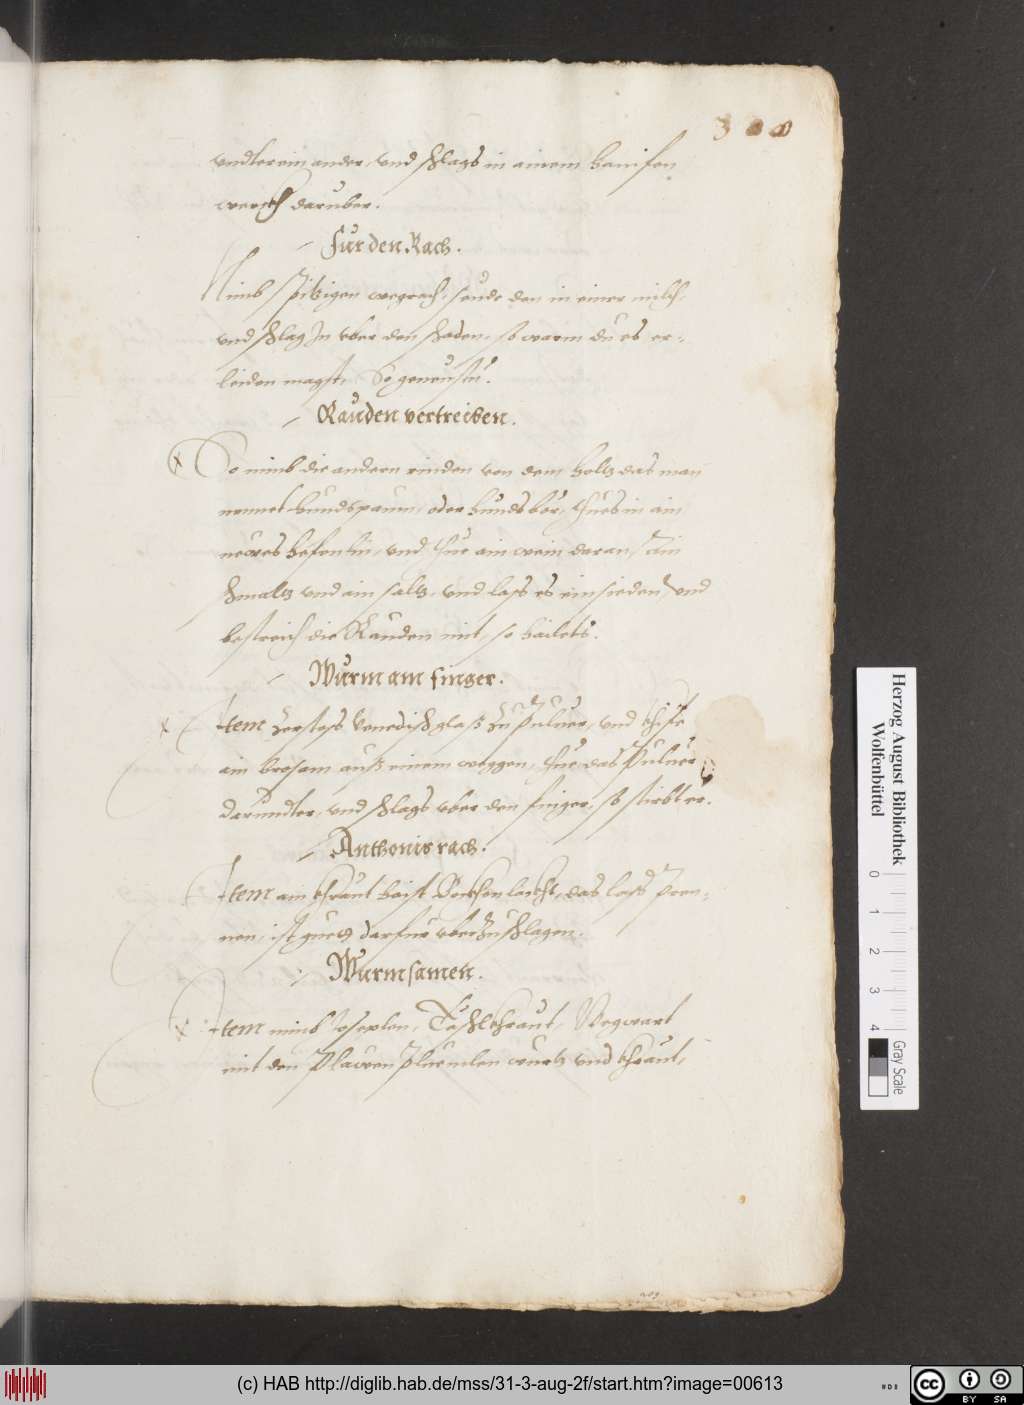 300
vndterein ander, vnd schlags in ainem hanifen
werckh daruber.
Fur den Rach.
Nimb spitzigen wegrach, seude den in einer milch,
vnd schlag In vber den schaden, so warm du es er-
leiden magst, So geneustu.
Rauden vertreiben.
So nimb die andern rinden von dem holtz das man
nennet hundspaum, oder hundsber, thues in ain
newes hefenlin, vnd thue ain wein daran, Ain
schmaltz vnd ain saltz, vnd lass es einsieden, vnd
bestreich die Rauden mit, so hailets.
Wurm am finger.
Item Zerstoss Venedisch glass Zu Puluer, vnd
ain brosam auss einem weggen, thue das Puluer
darundter, vnd schlags vber den finger, so stirbt er.
Anthonis rach.
Item ain khraut haist das lass
nen, ist guet darfur vberZuschlagen.
Wurmsamen.
Item nimb Wegwart
mit den Plawen Pluemlen wurtz vnd khraut,
Herzog August Bibliothek
Wolfenbüttel
0 1 2 3 4
Gray Scale
(c) HAB http://diglib.hab.de/mss/31-3-aug-2f/start.htm?image=00613
cc BY SA